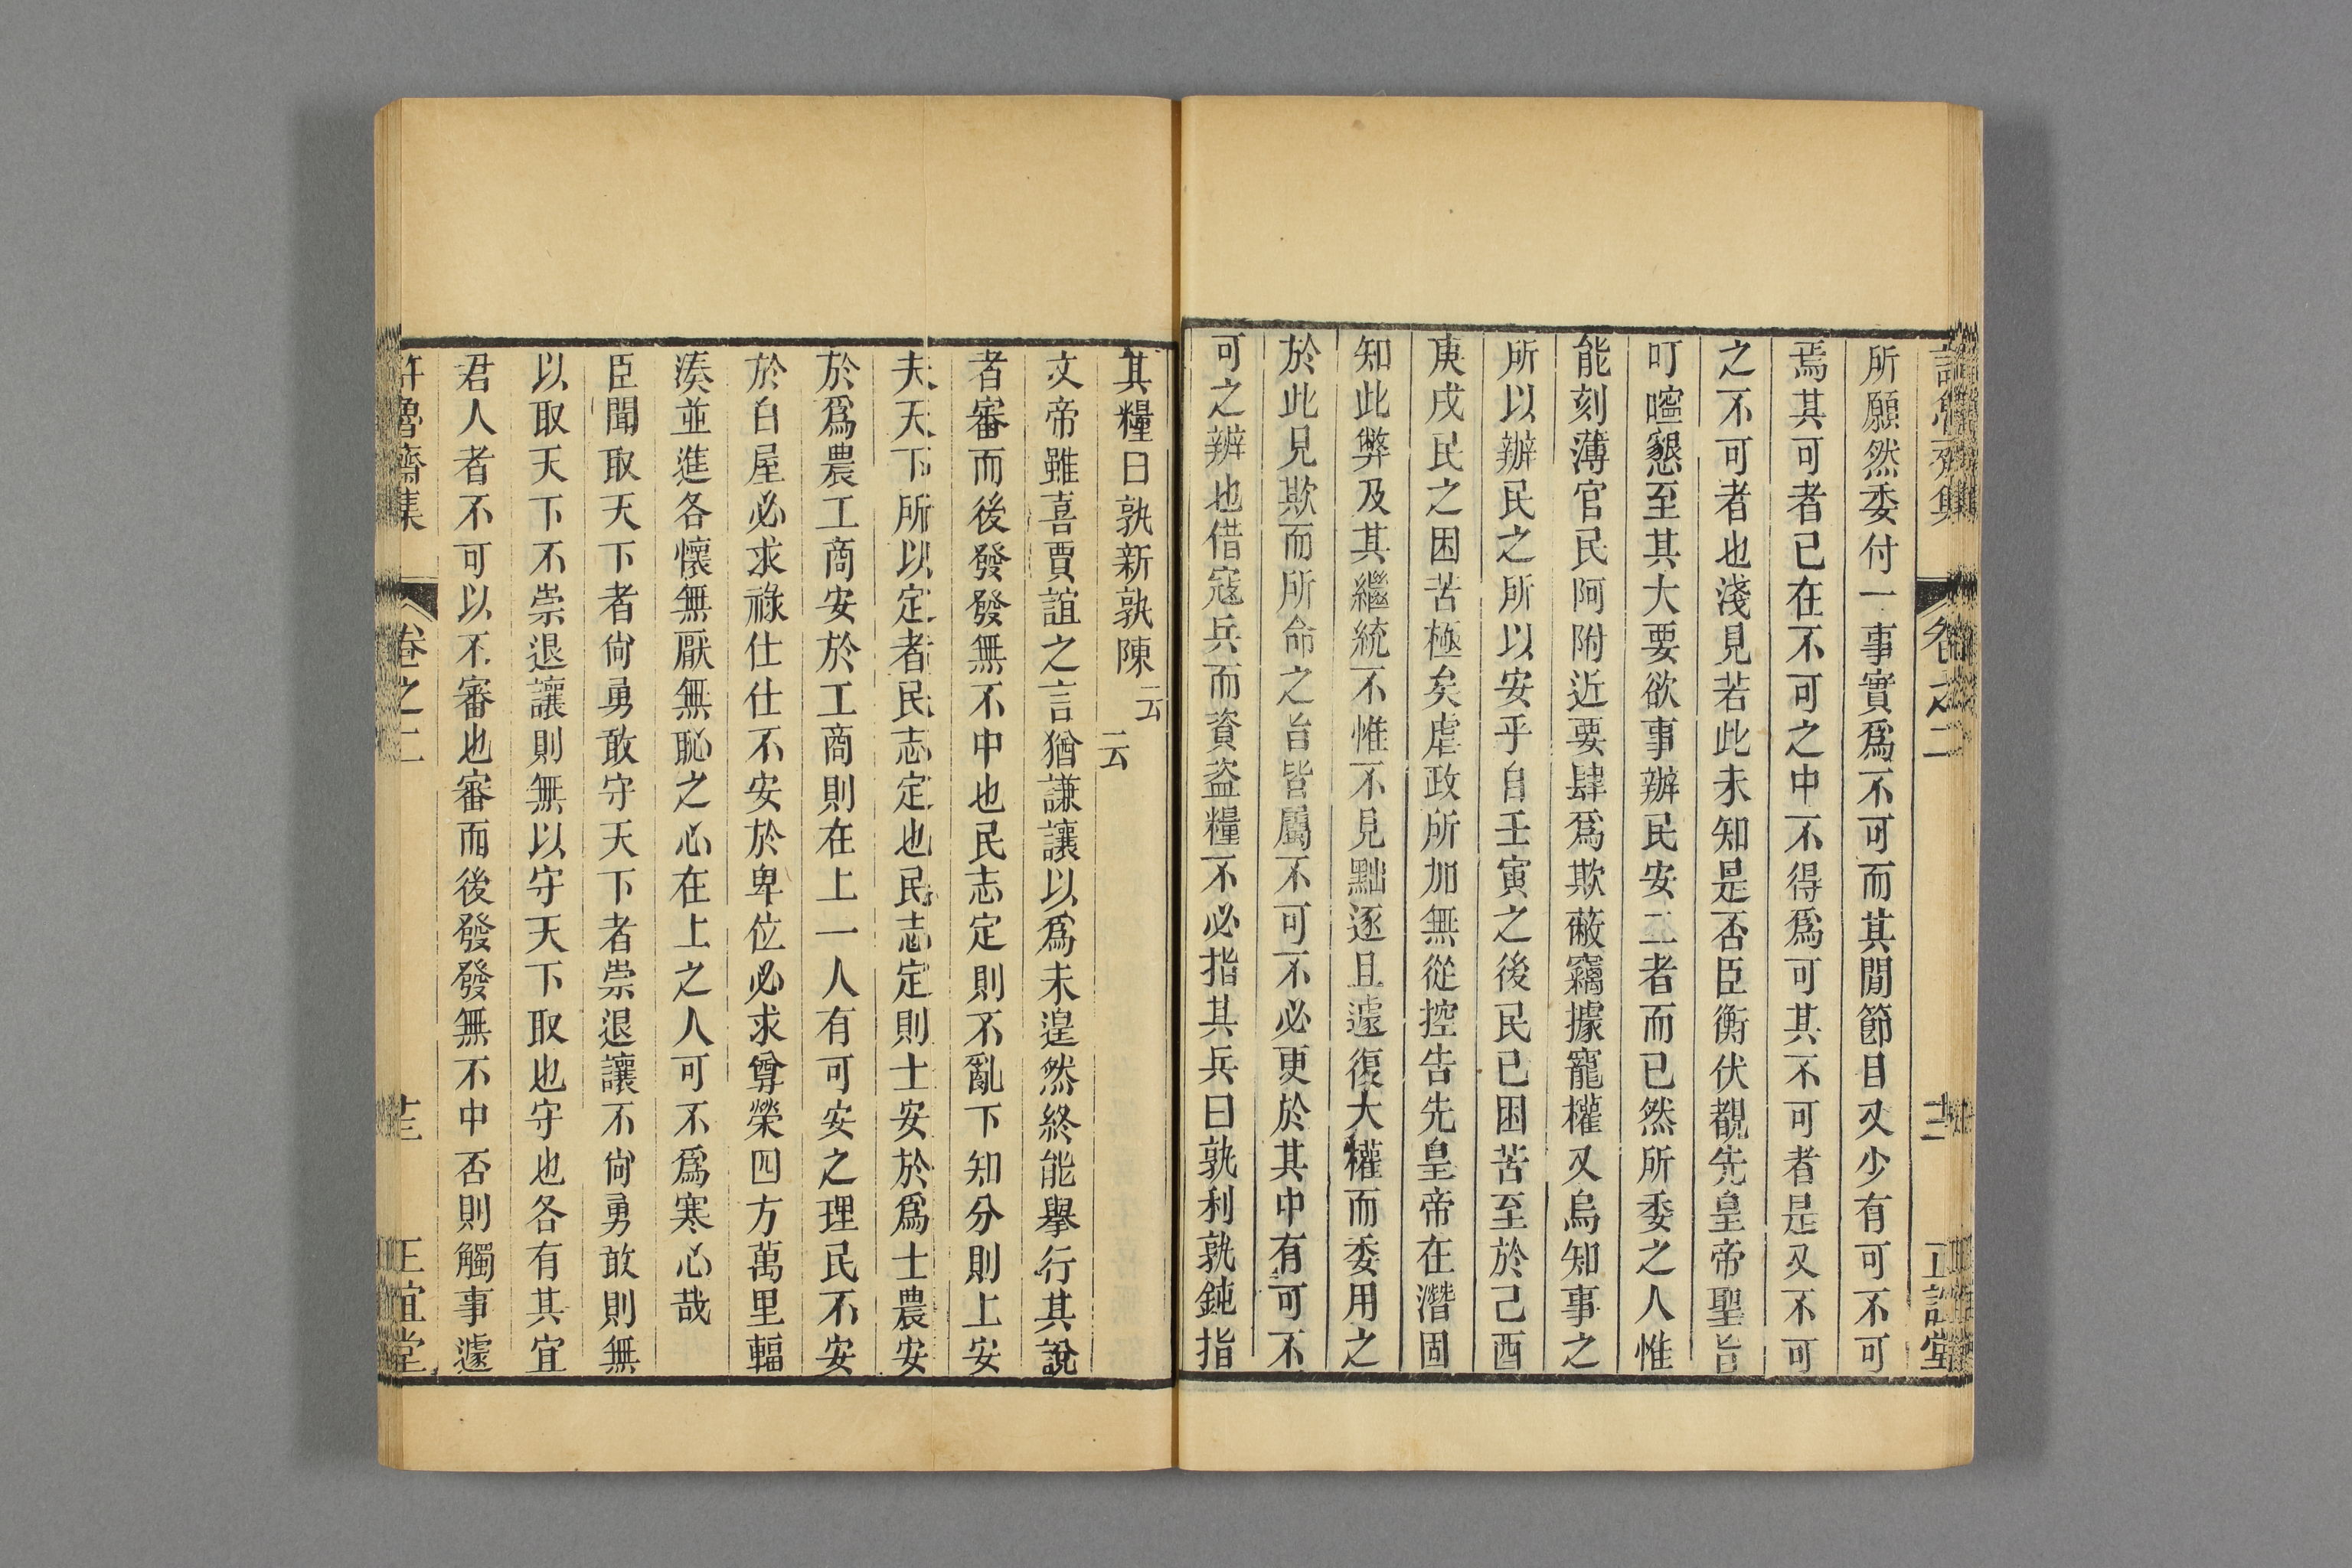 所願然委付一事實爲不可而其閒節目又少有可不可
焉其可者已在不可之中不得爲可其不可者是又不可
之不可者也淺見若此未知是否臣衡伏覩先皇帝聖旨
叮嚀懇至其大要欲事辦民安二者而已然所委之人惟
能刻薄官民阿附近要肆爲欺蔽竊據寵權又烏知事之
所以辦民之所以安乎自壬寅之後民已困苦至於己酉
庚戌民之困苦極矣虐政所加無從控告先皇帝在潛固
知此弊及其繼統不惟不見黜逐且遽復大權而委用之
於此見欺而所命之旨皆屬不可不必更於其中有可不
可之辨也借寇兵而資盜糧不必指其兵曰孰利孰鈍指
其糧曰孰新孰陳云云
文帝雖喜賈誼之言猶謙讓以爲未遑然終能舉行其說
者審而後發發無不中也民志定則不亂下知分則上安
夫天下所以定者民志定也民志定則士安於爲士農安
於爲農工商安於工商則在上一人有可安之理民不安
於白屋必求祿仕仕不安於卑位必求尊榮四方萬里輻
湊並進各懷無厭無恥之心在上之人可不爲寒心哉
臣聞取天下者尙勇敢守天下者崇退讓不尙勇敢則無
以取天下不崇退讓則無以守天下取也守也各有其宜
君人者不可以不審也審而後發發無不中否則觸事遽
許魯齋集
卷之二
正誼堂